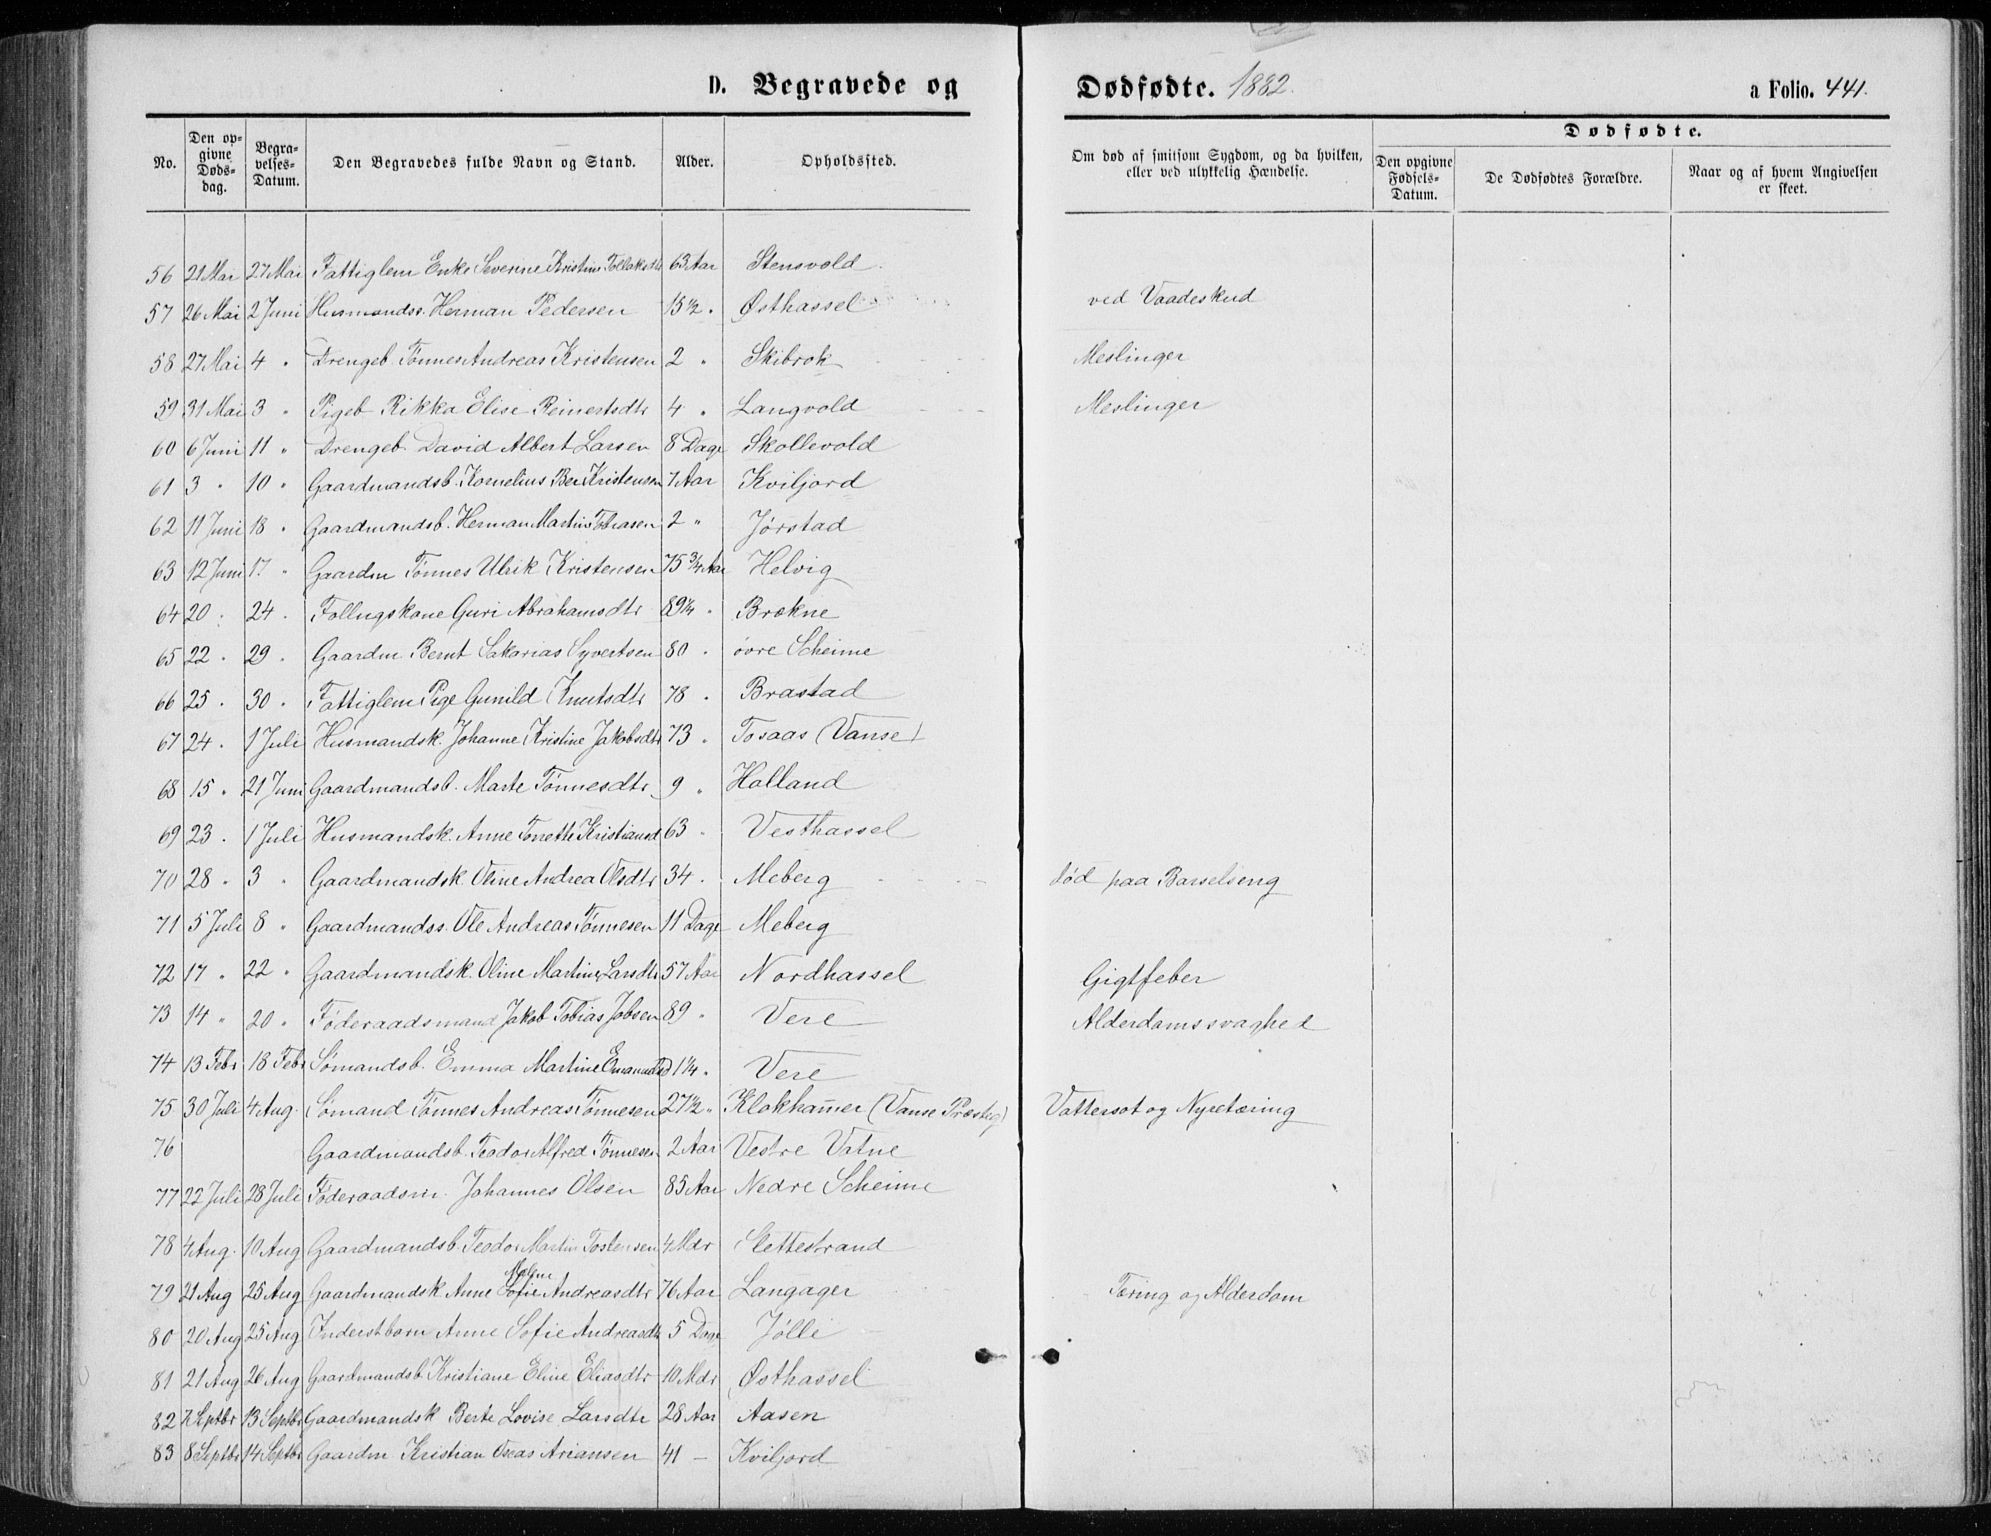 D. Begravede og Dødfødte. 1882. a Folio. 441.
No. | Den opgivne Dødsdag. | Begravelses-Datum. | Den Begravedes fulde Navn og Stand. | Alder. | Opholdssted. | Om død af smitsom Sygdom, og da hvilken, eller ved ulykkelig Hændelse. | Dødfødte. | Den opgivne Fødsels-Datum. | De Dødfødtes Forældre. | Naar og af hvem Angivelsen er skeet.
56 21 Mai 27 Mai Fattiglem Enke Severine Kristine Tollaksdtr 63 Aar Stensvold
57 26 Mai 2 Juni Husmandss. Herman Pedersen 15½ " Østhassel ved Vaadeskud
58 27 Mai 4 " Drengeb. Tønnes Andreas Kristensen 2 " Skibrok Meslinger
59 31 Mai 3 " Pigeb Rikka Elise Reinertsdtr 4 " Langvold Meslinger
60 6 Juni 11 " Drengeb. David Albert Larsen 8 Dage Skollevold
61 3 " 10 " Gaardmandsb. Kornelius Ber Kristensen 7 Aar Kviljord
62 11 Juni 18 " Gaardmandsb. Herman Martin Tobiasen 2 " Jørstad
63 12 Juni 17 " Gaardm Tønnes Ulrik Kristensen 75¾ Aar Helvig
64 20 " 24 " Follugskone Guri Abrahamsdtr 89¼ " Brekne
65 22 " 29 " Gaardm Bernt Sakarias Syvertsen 80 " øvre Scheime
66 25 " 30 " Fattiglem Pige Gunild Knutsdtr 78 " Brastad
67 24 " 1 Juli Husmandsk. Johanne Kristine Jakobsdtr 73 " Tosaas (Vanse)
68 15 " 21 Juni Gaardmandsb. Marte Tønnesdtr 9 " Holland
69 23 " 1 Juli Husmandsk. Anne Torrethe Kristiansd 63 " Vesthassel
70 28 " 3 " Gaardmandsk. Oline Andrea Olsdtr 34 " Meberg død paa Barselseng
71 5 Juli 8 " Gaardmandss. Ole Andreas Tønnesen 11 Dage Meberg
72 17 " 22 " Gaardmandsk. Oline Martine Larsdtr 57 Aar Nordhassel Gigtfeber
73 14 " 20 " Føderaadsmand Jakob Tobias Jobsen 89 " Vere Alderdomssvaghed
74 13 Febr 18 Febr Sømandsb. Emma Martine Emanuelsd 1¼ " Vere
75 30 Juli 4 Aug. Sømand Tønnes Andreas Tønnesen 27½ " Klokhamer (Vanse Præsteg) Vattersot og Nyretæring
76 Gaardmandsb. Teodor Alfred Tønnesen 2 Aar Vestre Vatne
77 22 Juli 28 Juli Føderaadsm. Johannes Olsen 85 Aar Nedre Scheime
78 4 Aug. 10 Aug Gaardmandsb. Teodor Martin Tostensen 4 Mdr Slettestrand
79 21 Aug 25 Aug Gaardmandsk Anne Malene Sofie Andreasdtr 76 Aar Langager Tæring og Alderdom
80 20 Aug 25 Aug Inderstbarn Anne Sofie Andreasdtr 5 Dage Jølli
81 21 Aug 26 Aug Gaardmandsb Kristiane Eline Eliasdtr 10 Mdr Østhassel
82 7 Septbr 13 Septbr Gaardmandsk Berte Lovise Larsdtr 28 Aar Aasen
83 8 Septbr 14 Septbr Gaardm Kristian Oseas Ariansen 41 — Kviljord